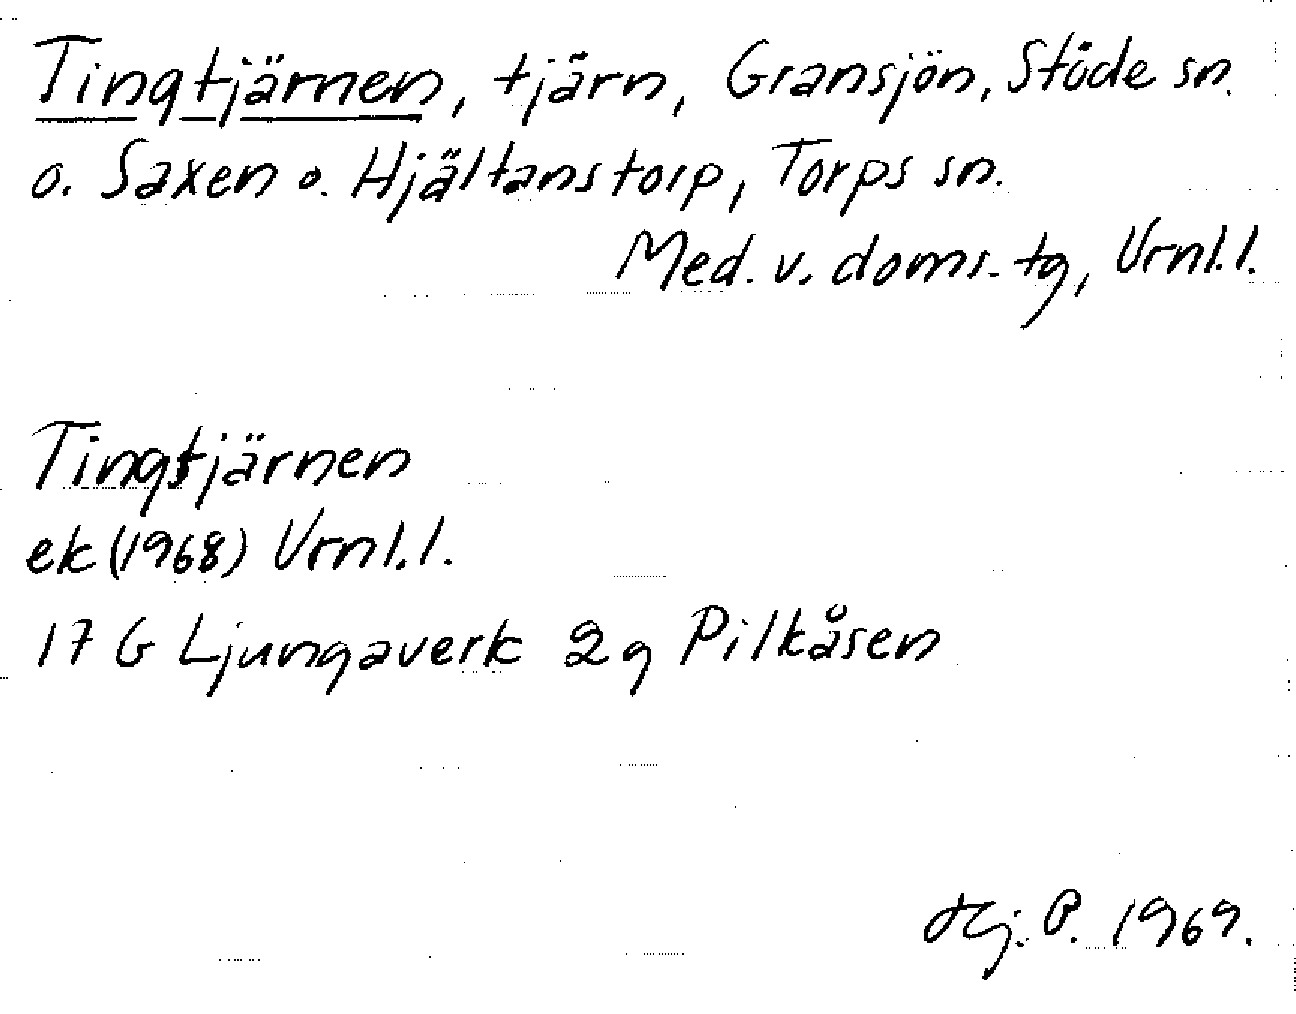 Tingtjärnen, tjärn, Gransjön, Stöde sn.
o. Saxen o. Hjältanstorp, Torps sn.
Med. v. doms. tg, Vrnl.l.
Tingstjärnen
ek (1968) Vrnl.l.
17 G Ljungaverk 2g Pilkåsen
Hj. P. 1969.